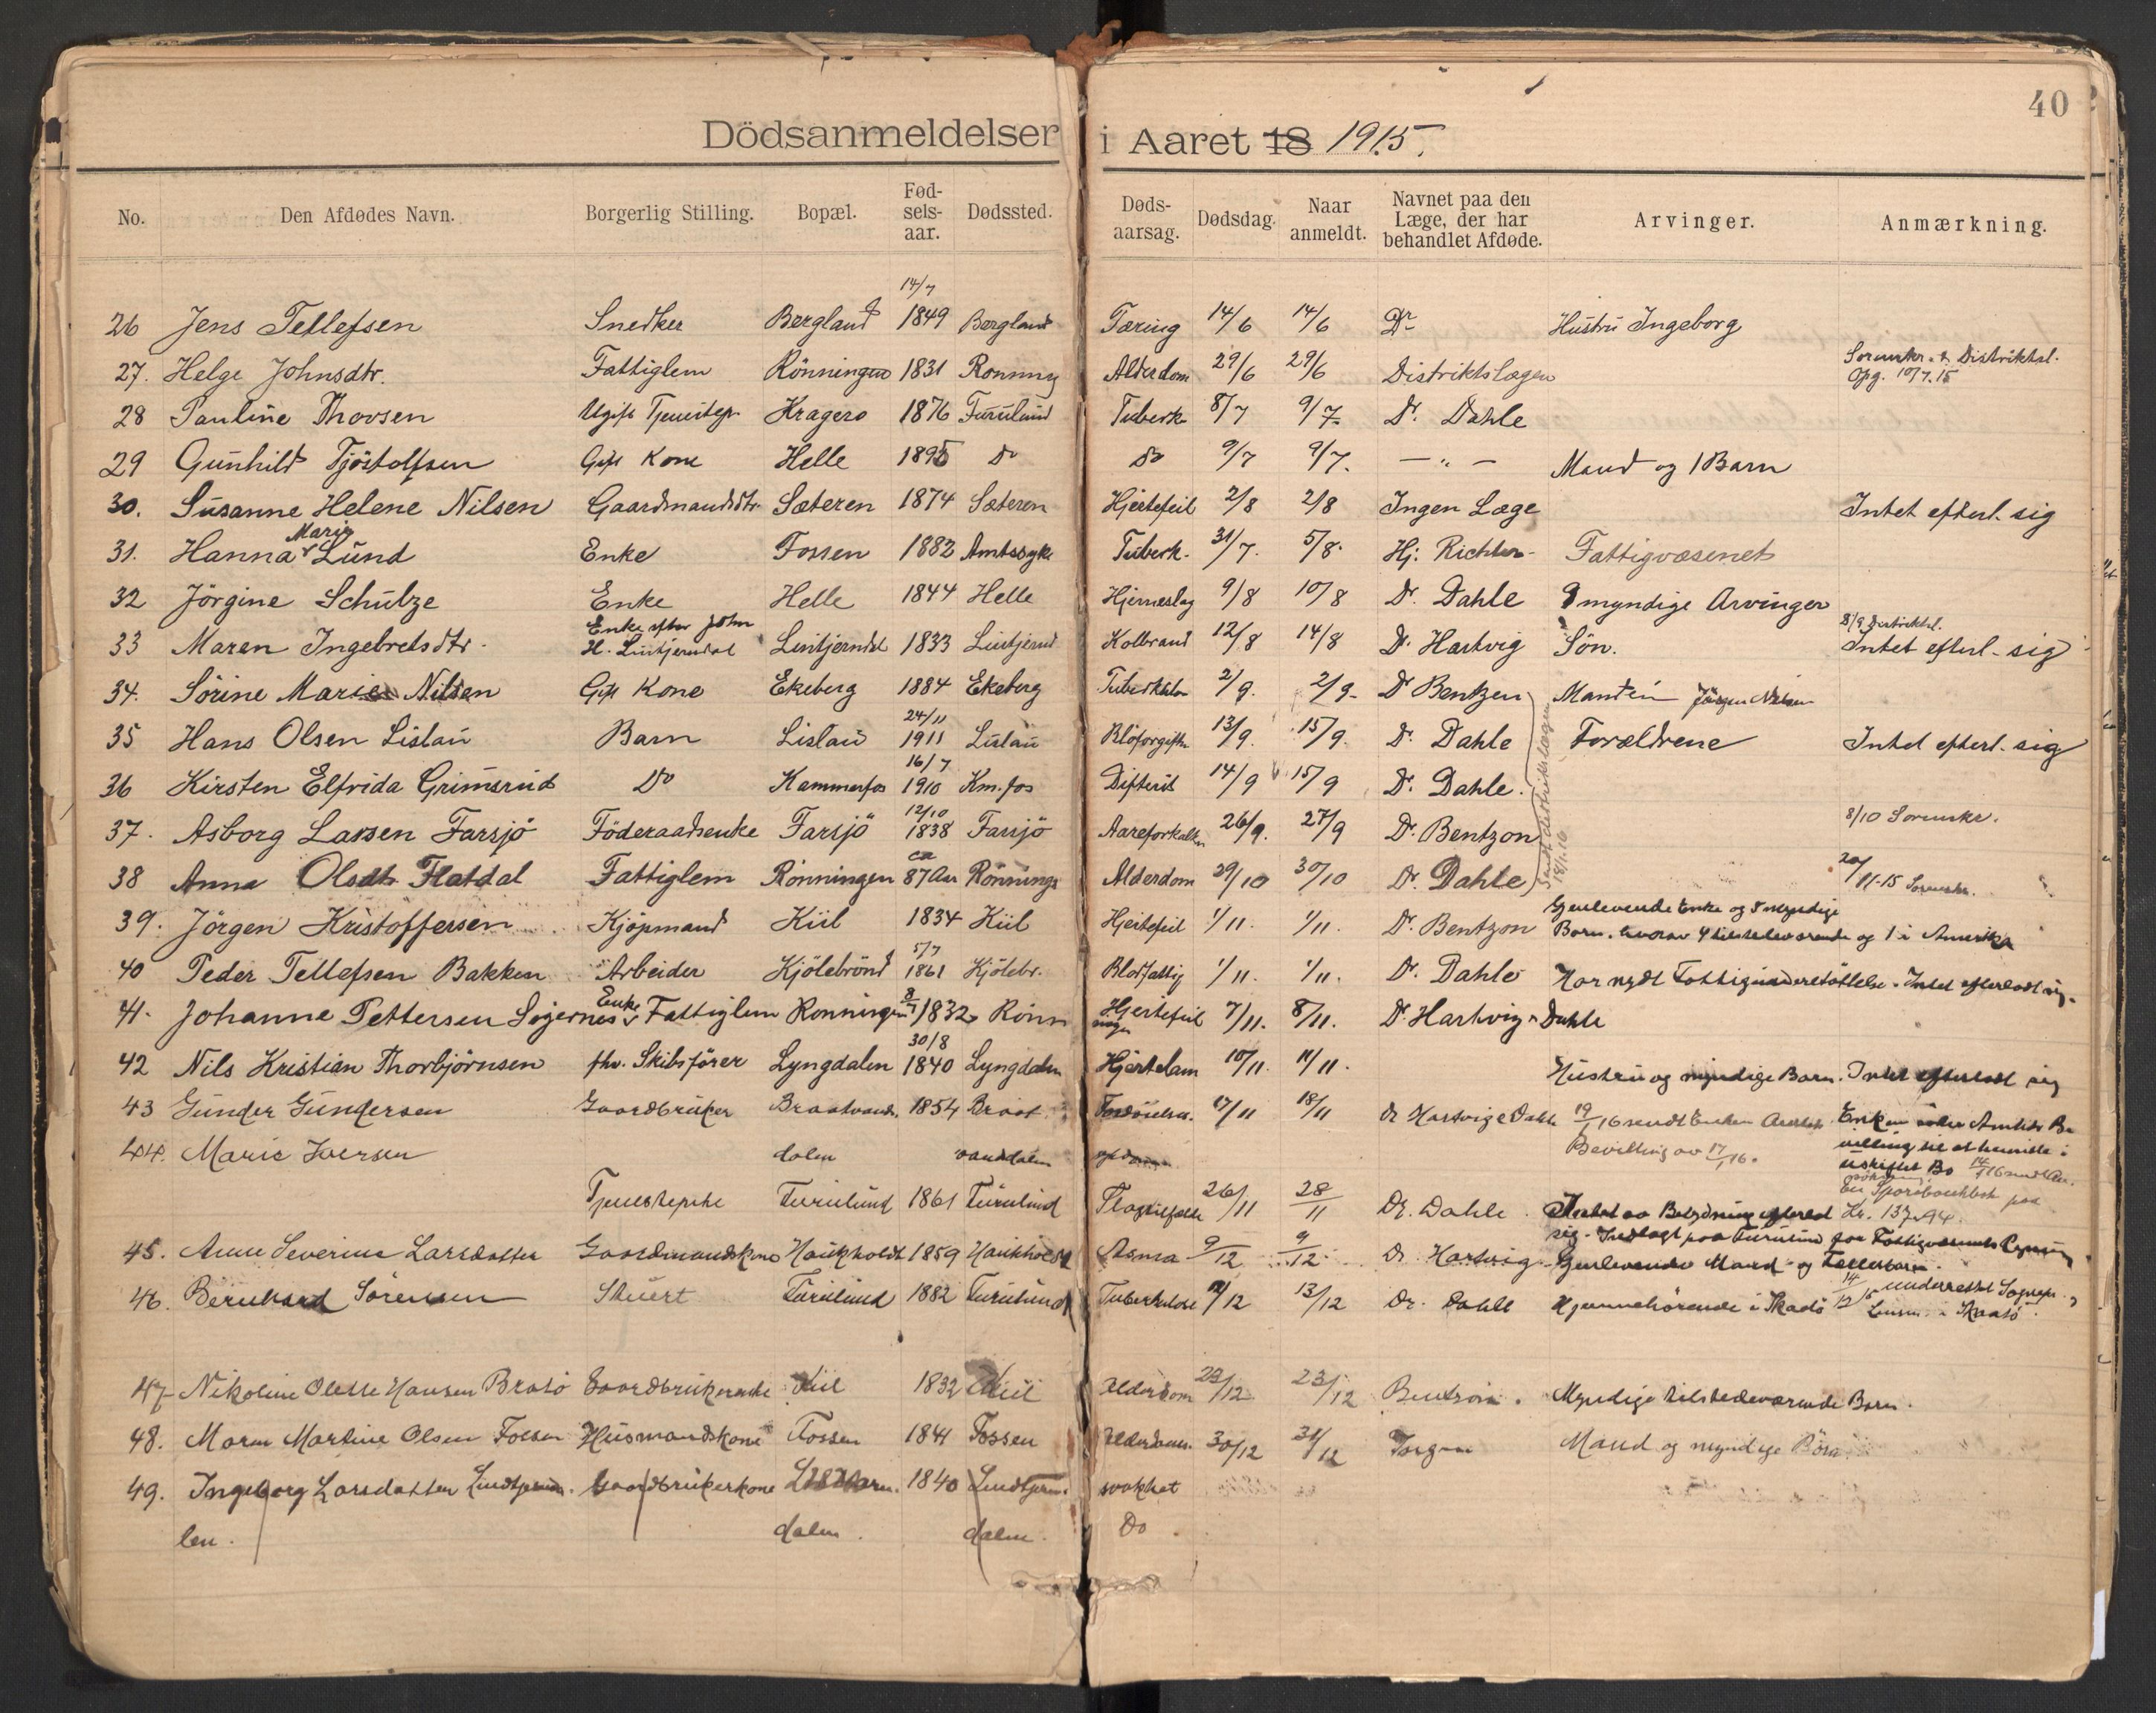 40
Dödsanmeldelser i Aaret 18 1915.
No. Den Afdødes Navn. Borgerlig Stilling. Bopæl. Fødselsaar. Dødssted. Dødsaarsag. Dødsdag. Naar anmeldt. Navnet paa den Læge, der har behandlet Afdøde. Arvinger. Anmærkning.
14/7
26 Jens Tellefsen Snedker Bergland 1849 Bergland Tæring 14/6 14/6 Dr Hustru Ingeborg
27. Helge Johnsdtr. Fattiglem Rönningen 1831 Rönning Alderdom 29/6 29/6 Distriktslægen Sorenskr. & Distriktsl.
Opg. 10/7.15
28 Pauline Thovsen Ugift Tjenstep. Kragerø 1876 Furulund Tuberk 8/7 9/7 Dr. Dahle
29 Gunhild Tjöstolfsen Gift Kone Helle 1895 Do Do 9/7 9/7. — " — Mand og 1 Barn
30. Susanne Helene Nilsen Gaardmandsdtr. Sæteren 1874 Sæteren Hjertefeil 2/8 2/8 Ingen Læge Intet efterl. sig
Marie
31. Hanna Lund Enke Fossen 1882 Amtssyke Tuberk. 31/7. 5/8. Hj: Richter Fattigvæsenet
32 Jörgine Schulze Enke Helle 1844 Helle Hjerneslag 9/8 10/8 Dr. Dahle 9 myndige Arvinger
Enke efter John 8/9 Distriktsl.
33 Maren Ingebretsdtr. H. Lintjerndal Lintjerndl 1833 Lintjernd Kolbrand 12/8 14/8 Dr. Hartvig Sön. Intet efterl. sig
34. Sörine Marie Nilsen Gift Kone Ekeberg 1884 Ekeberg Tuberkulose 2/9. 2/9. Dr Bentzen Manden Jörgen Nilsen
24/11
35 Hans Olsen Lislau Barn Lislau 1911 Lislau Blöforgiftn 13/9. 15/9. Dr. Dahle Forældrene Intet efterl. sig
16/7
36 Kirsten Elfrida Grimsrud Do Kammerfos 1910 Km.fos Difterit 14/9 15/9 Dr. Dahle.
12/10
37. Asborg Larsen Farsjö Föderaadsenke Farsjö 1838 Farsjö Aareforkalkn 26/9. 27/9 Dr. Bentzon 8/10 Sorenskr.
ca
38 Anna Olsdtr Flatdal Fattiglem Rönningen 87 Aar Rönnings Alderdom 29/10 30/10 Dr. Dahle 20/11-15 Sorenskr.
Sendt distriktslægen 18/1.16
Gjenlevende Enke og 5 myndige
39. Jörgen Kristoffersen Kjöpmand Kiil 1834 Kiil Hjertefeil 1/11. 1/11. Dr. Bentzon Barn. hvorav 4 tilstedeværende og 1 i Amerika
5/7
40 Peder Tellefsen Bakken Arbeider Kjölebrönd 1861 Kjölebr. Blodfattig 1/11. 1/11. Dr. Dahle Har nydt Fattigunderstöttelse. Intet efterladt sig.
41. Johanne Pettersen Sogernes Enke Fattiglem Rönningen 8/7 1832 Rönningen Hjertefeil 7/11. 8/11. Dr. Hartvig & Dahle
30/8
42 Nils Kristian Thorbjörnsen fhv. Skibsförer Lyngdalen 1840 Lyngdalen Hjertelam 10/11. 11/11. Hustru og myndige Barn. Intet efterladt sig
43 Gunder Gundersen Gaardbruker Braatvanddalen 1854 Braatvanddalen 17/11 18/11 Dr Hartvig & Dahle 19/1 16 sendt Enken
Bevilling av 17/1 16.
44. Marie Iversen Tjenstepike Furulund 1861 Furulund 26/11 28/11 Dr. Dahle.
Kr. 137.94.
45. Anne Severine Larsdatter Gaardmandskone Haukholdt 1859 Haukholdt Asma 9/12 9/12 Dr. Hartvig Gjenlevende Mand og Fællesbarn.
46. Bernhard Sörensen Stuert Furulund 1882 Furulund Tuberkulose 12/12 13/12 Dr. Dahle Hjemmehörende i Skaatö 14/12 15 underrettet Sognepr. Lensm. i Skaatö.
47 Nikoline Olette Hansen Bratö Gaardbrukerenke Kiil 1832 Kiil Alderdom 23/12 23/12 Bentzon. Myndige tilstedeværende Barn.
48. Maren Martine Olsen Fossen Husmandskone Fossen 1841 Fossen Alderdomssvakhet 30/12 31/12 Mand og myndige Börn
49. Ingeborg Larsdatter Lindtjerndalen. Gaardbrukerkone Lindtjerndalen. 1840 Lindtjerndalen. Do